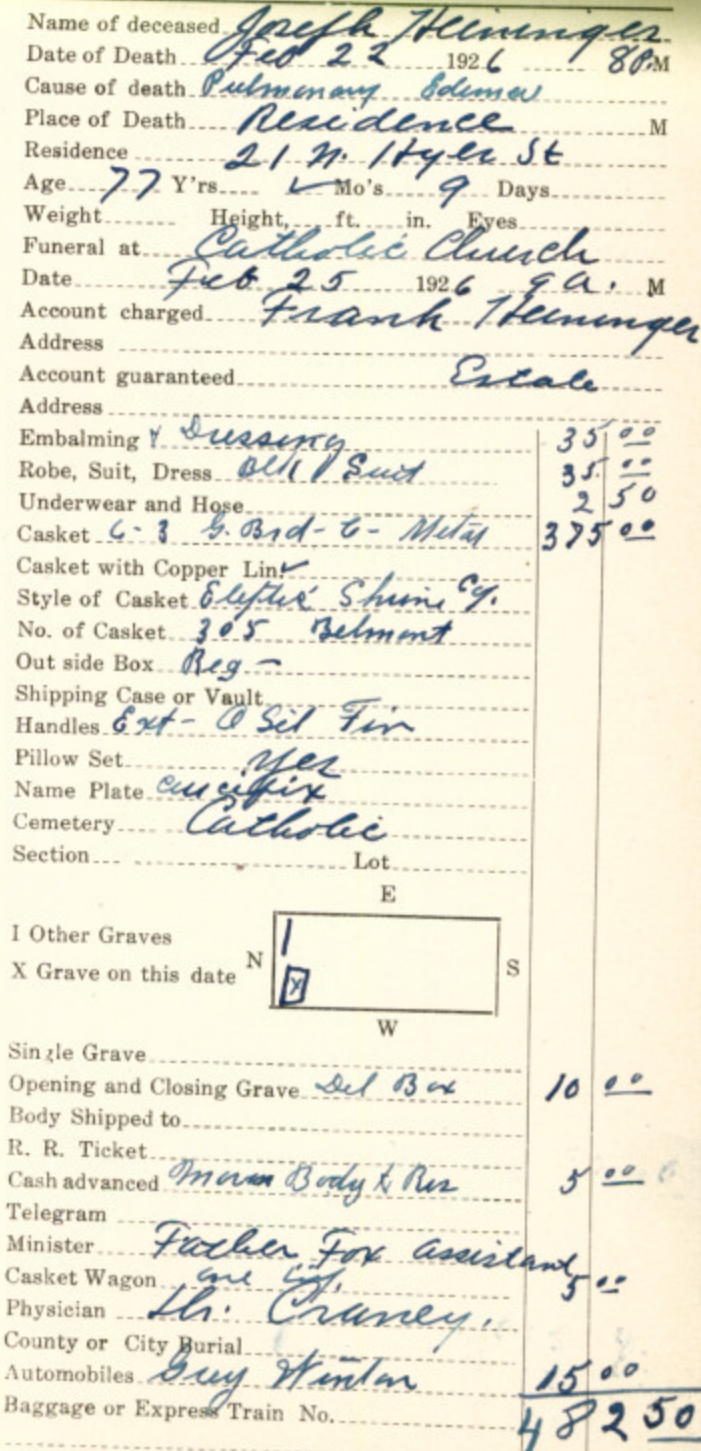 Name of deceased Joseph Heininger
Date of Death Feb 22 1926 8 P.M
Cause of death Pulmonary Edema
Place of Death Residence M
Residence 21 N. Hyer St
Age 77 Y'rs ✓ Mo's 9 Days
Weight Height, ft. in. Eyes
Funeral at Catholic Church
Date Feb 25 1926 9 a. M
Account charged Frank Heininger
Address
Account guaranteed Estate
Address
Embalming & Dressing 35 00
Robe, Suit, Dress Blk Suit 35 00
Underwear and Hose 2 50
Casket 6-3 G. Brd-6- Metal 375 00
Casket with Copper Lin ✓
Style of Casket Shrine
No. of Casket 305 Belmont
Out side Box Reg -
Shipping Case or Vault
Handles Ext- O Sil Fin
Pillow Set yes
Name Plate Crucifix
Cemetery Catholic
Section Lot
E
I Other Graves
X Grave on this date N X S
W
Single Grave
Opening and Closing Grave Del Box 10 00
Body Shipped to
R. R. Ticket
Cash advanced Body & Res 5 00
Telegram
Minister Father Fox assistant
Casket Wagon one 5 00
Physician Dr. Craney.
County or City Burial
Automobiles Guy Winton 15 00
Baggage or Express Train No. 482 50